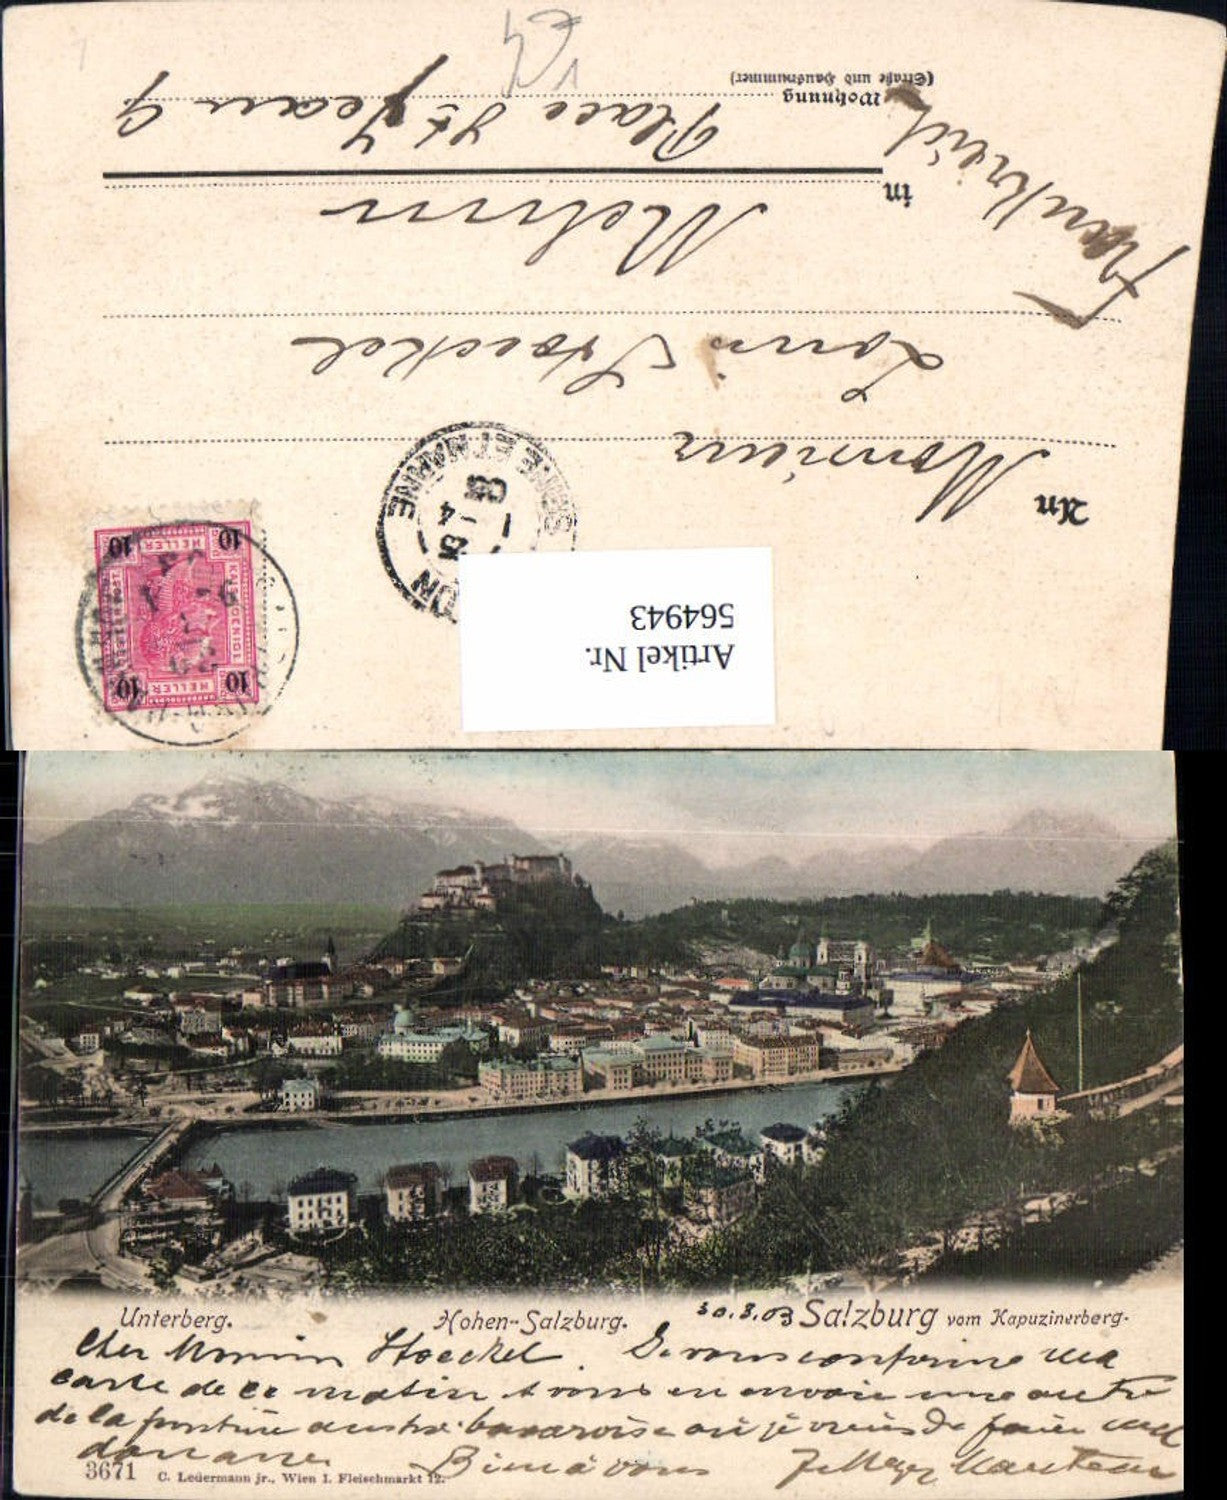 An Monsieur
Louis Stoeckel
in Melun
Place St Jean 9
Wohnung
(Straße und Hausnummer)
Frankreich
SEINE ET MARNE
10 HELLER 10
10 HELLER 10
Artikel Nr.
564943
Unterberg.
Hohen-Salzburg.
30.3.03 Salzburg vom Kapuzinerberg.
Cher Monsieur Stoeckel. Je vous confirme ma
carte de ce matin & vous en envoie une autre
de la frontière austro-bavaroise où je viens de faire ma
douane Bien à vous
3671
C. Ledermann jr., Wien I. Fleischmarkt 12.